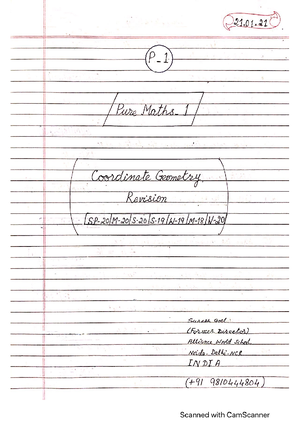 21.01.21
P_1
Pure Maths_1
Coordinate Geometry
Revision
|SP-20|M-20|S-20|S-19|W-19|M-19|W-20
Suresh Goel
(Former Director)
Alliance World School
Noida, Delhi-NCR
INDIA
(+91 9810444804)
Scanned with CamScanner